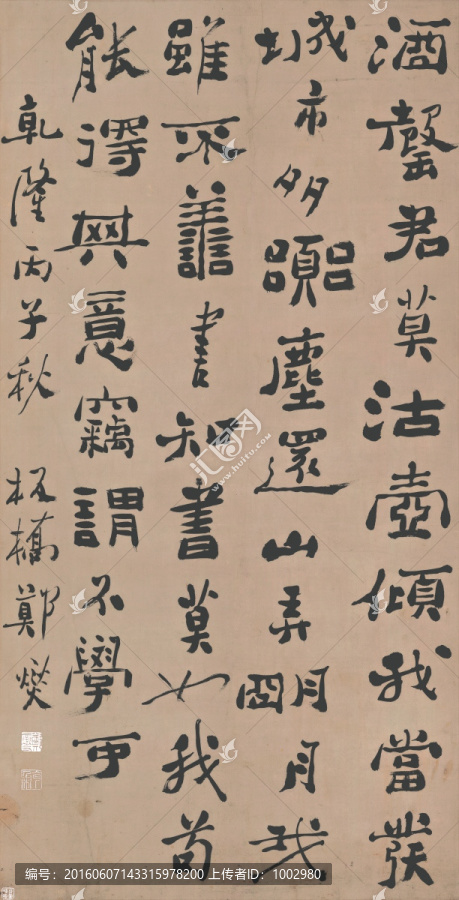 酒罄君莫沽壺傾我當發
城市多囂塵還山弄明月我
雖不善書知書莫如我苟
能得其意竊謂不學可
乾隆丙子秋 板橋鄭燮
汇图网
www.huitu.com
编号:20160607143315978200 上传者ID:1002980